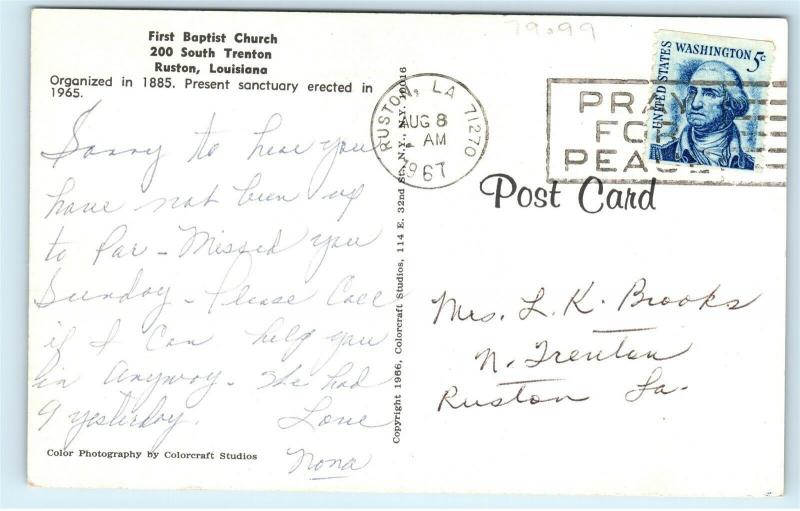 First Baptist Church
200 South Trenton
Ruston, Louisiana
Organized in 1885. Present sanctuary erected in
1965.
Sorry to hear you
have not been up
to Par - Missed you
Sunday - Please Call
if I can help you
in anyway. She had
9 yesterday. Love
Nona
Color Photography by Colorcraft Studios
Copyright 1966, Colorcraft Studios, 114 E. 32nd St., N.Y., N.Y. 10016
79.99
RUSTON, LA 71270
AUG 8
AM
1967
PRAY
FOR
PEACE
UNITED STATES
WASHINGTON 5c
Post Card
Mrs. L. K. Brooks
N. Trenton
Ruston La.